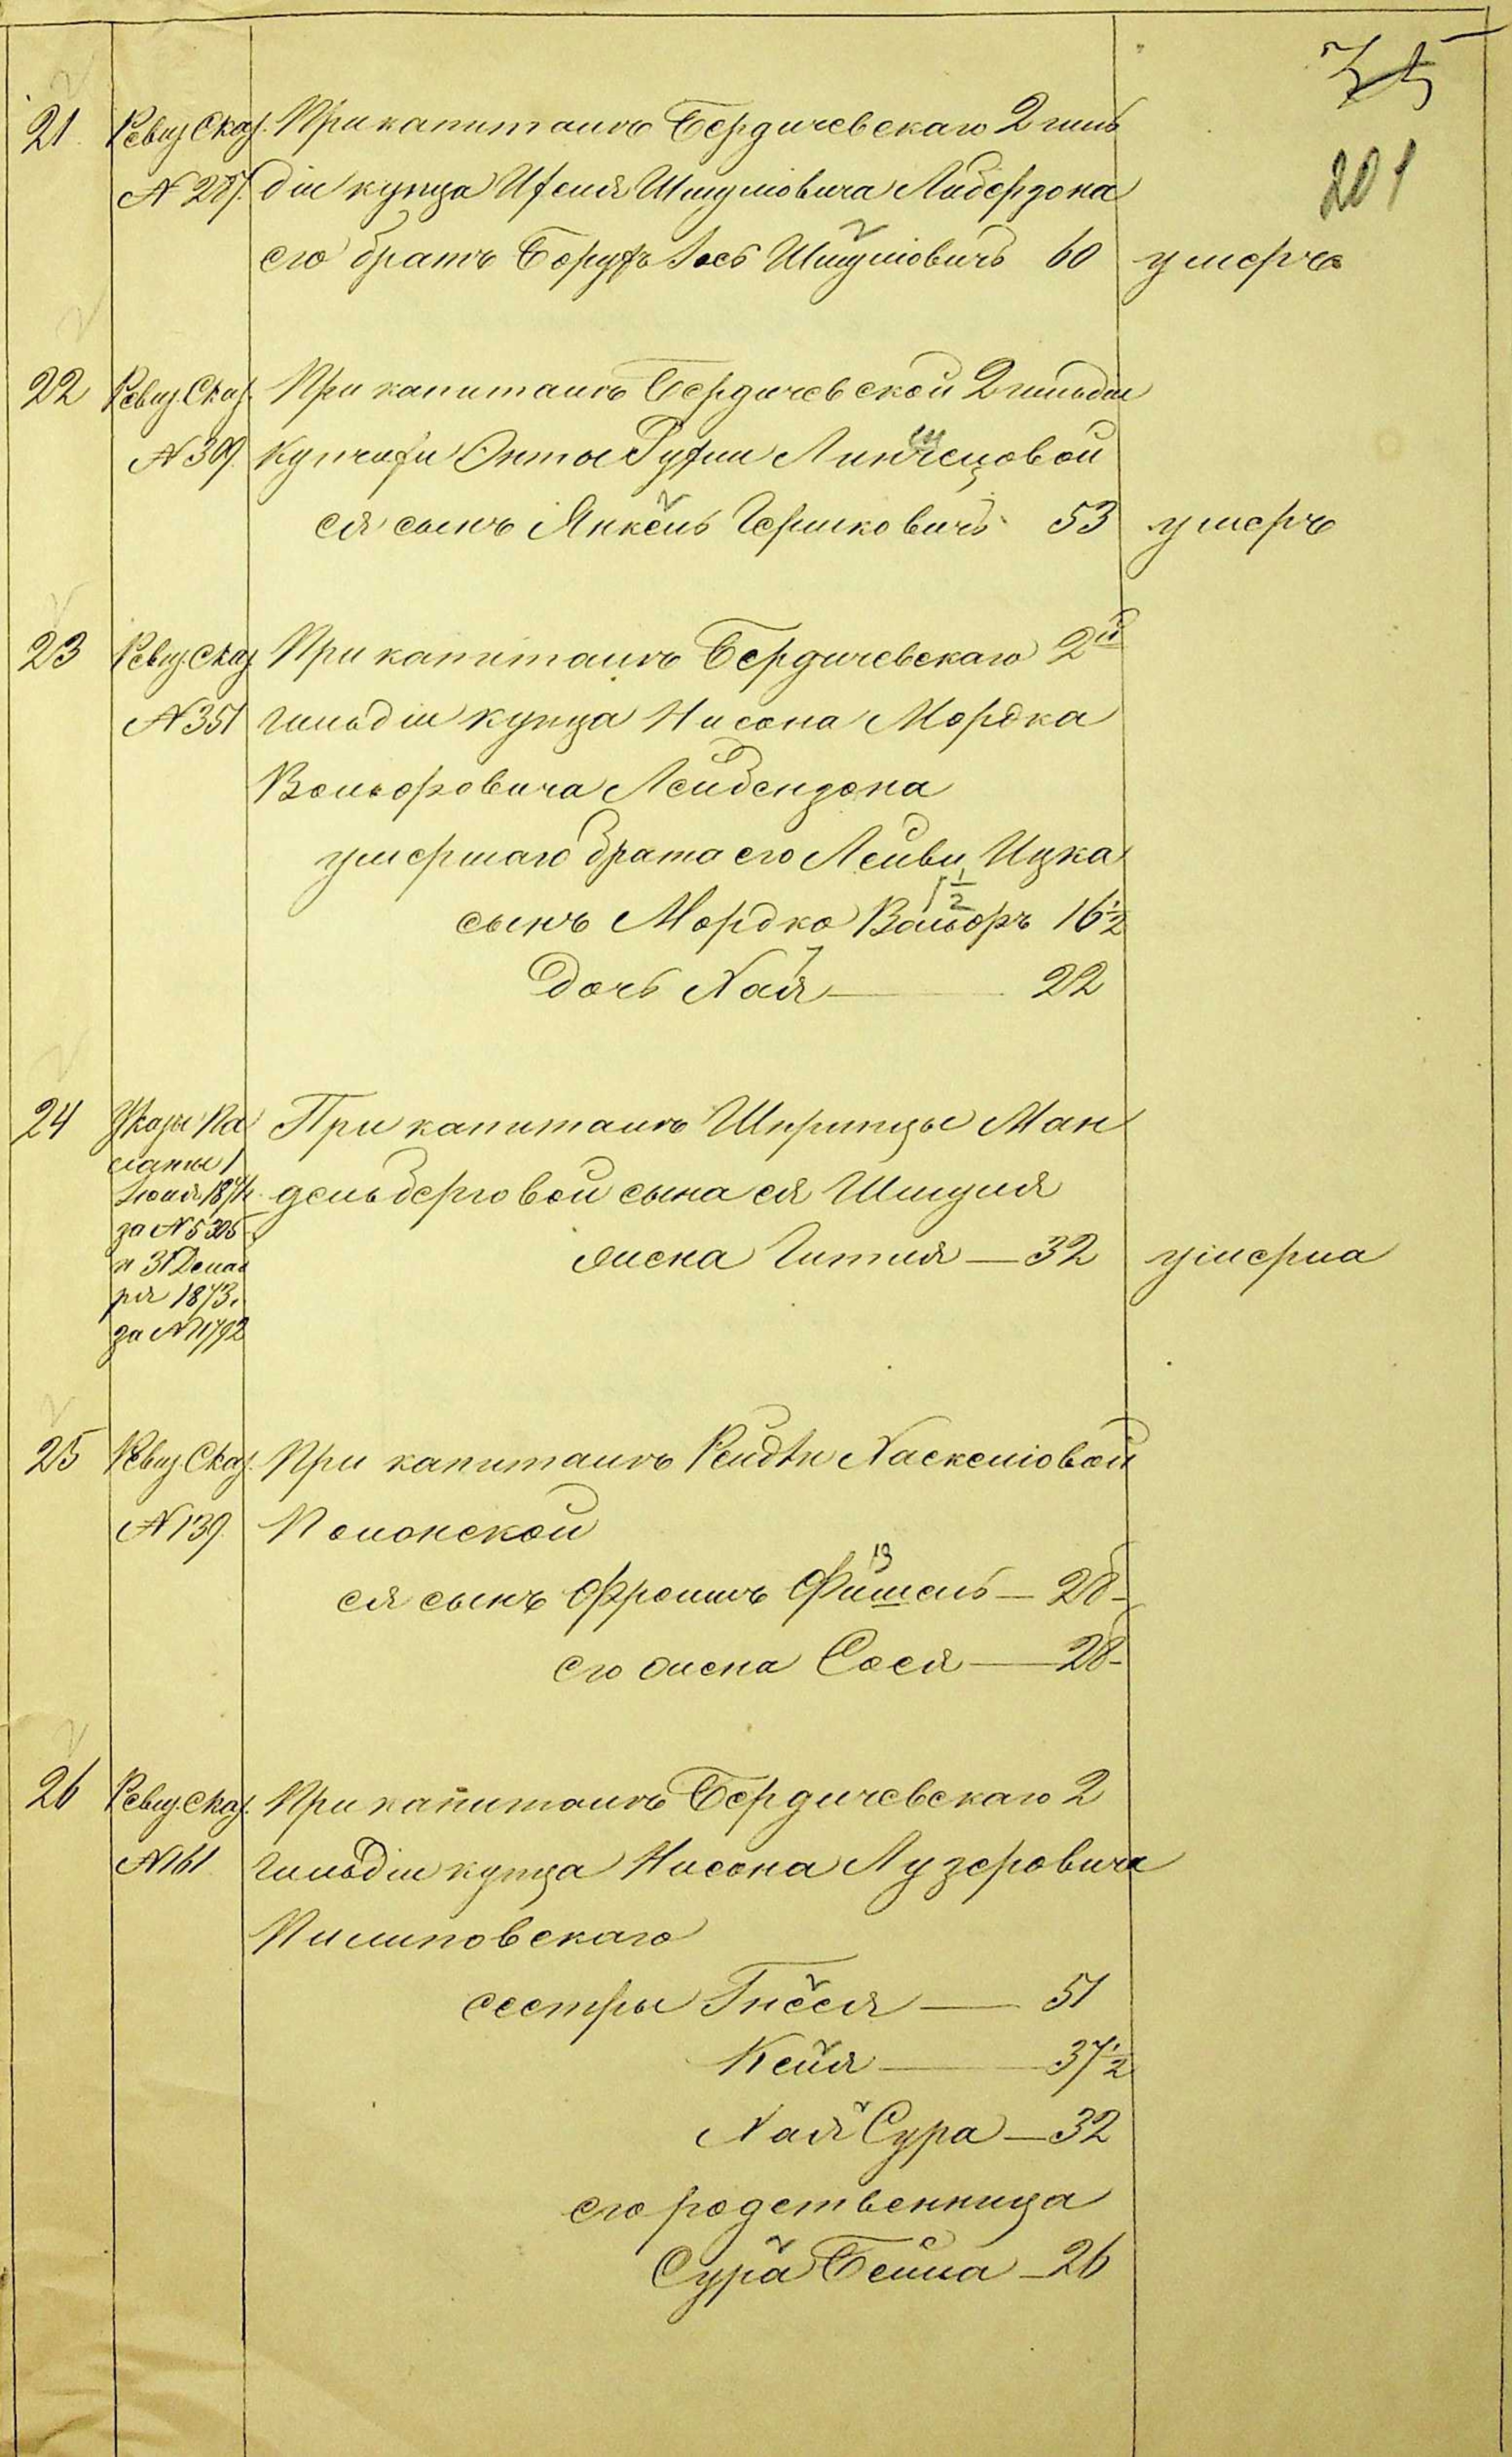 35
201
21 Ревиз. Сказ. При капиталѣ Бердичевскаго 2 гиль
№ 287. діи купца Ихеля Шмулiовича Либерзона
его братъ Борухъ Iось Шмулiовичъ 60 умеръ
22 Ревиз. Сказ. При капиталѣ Бердичевской 2 гильдіи
№ 309. купчихи Энты Рухли
ея сынъ Янкель Гершковичъ 53 умеръ
23 Ревиз. Сказ. При капиталѣ Бердичевскаго 2й
№ 351 гильдіи купца Нисона Мордка
Вольфовича Лейбензона
умершаго брата его Лейви Ицка
1 1/2
сынъ Мордко Вольфъ 16 1/2
дочь Хая 22
24 Указы Па При капиталѣ Шпринцы Ман
латы 1
Iюля 187 дельберговой сына ея Шмуля
за № 5305
и 31 Декаб жена Гитля — 32 умерла
ря 1873 г.
за № 11792
25 Ревиз. Сказ. При капиталѣ Рейди Хаскелiовой
№ 139. Полонской
13
ея сынъ Фроимъ Фишель — 28
его жена Сося — 28
26 Ревиз. Сказ. При капиталѣ Бердичевскаго 2
№ 161 гильдіи купца Нисона Лузеровича
Пилиповскаго
сестры Гнеся — 51
Кейля — 37 1/2
Хая Сура — 32
его родственница
Сура Бейла — 26